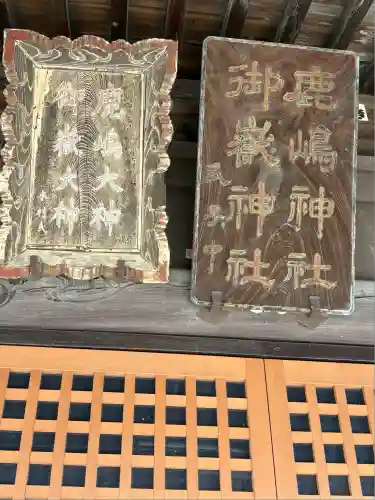 鹿嶋大神
御嶽大神
鹿嶋神社
御嶽神社